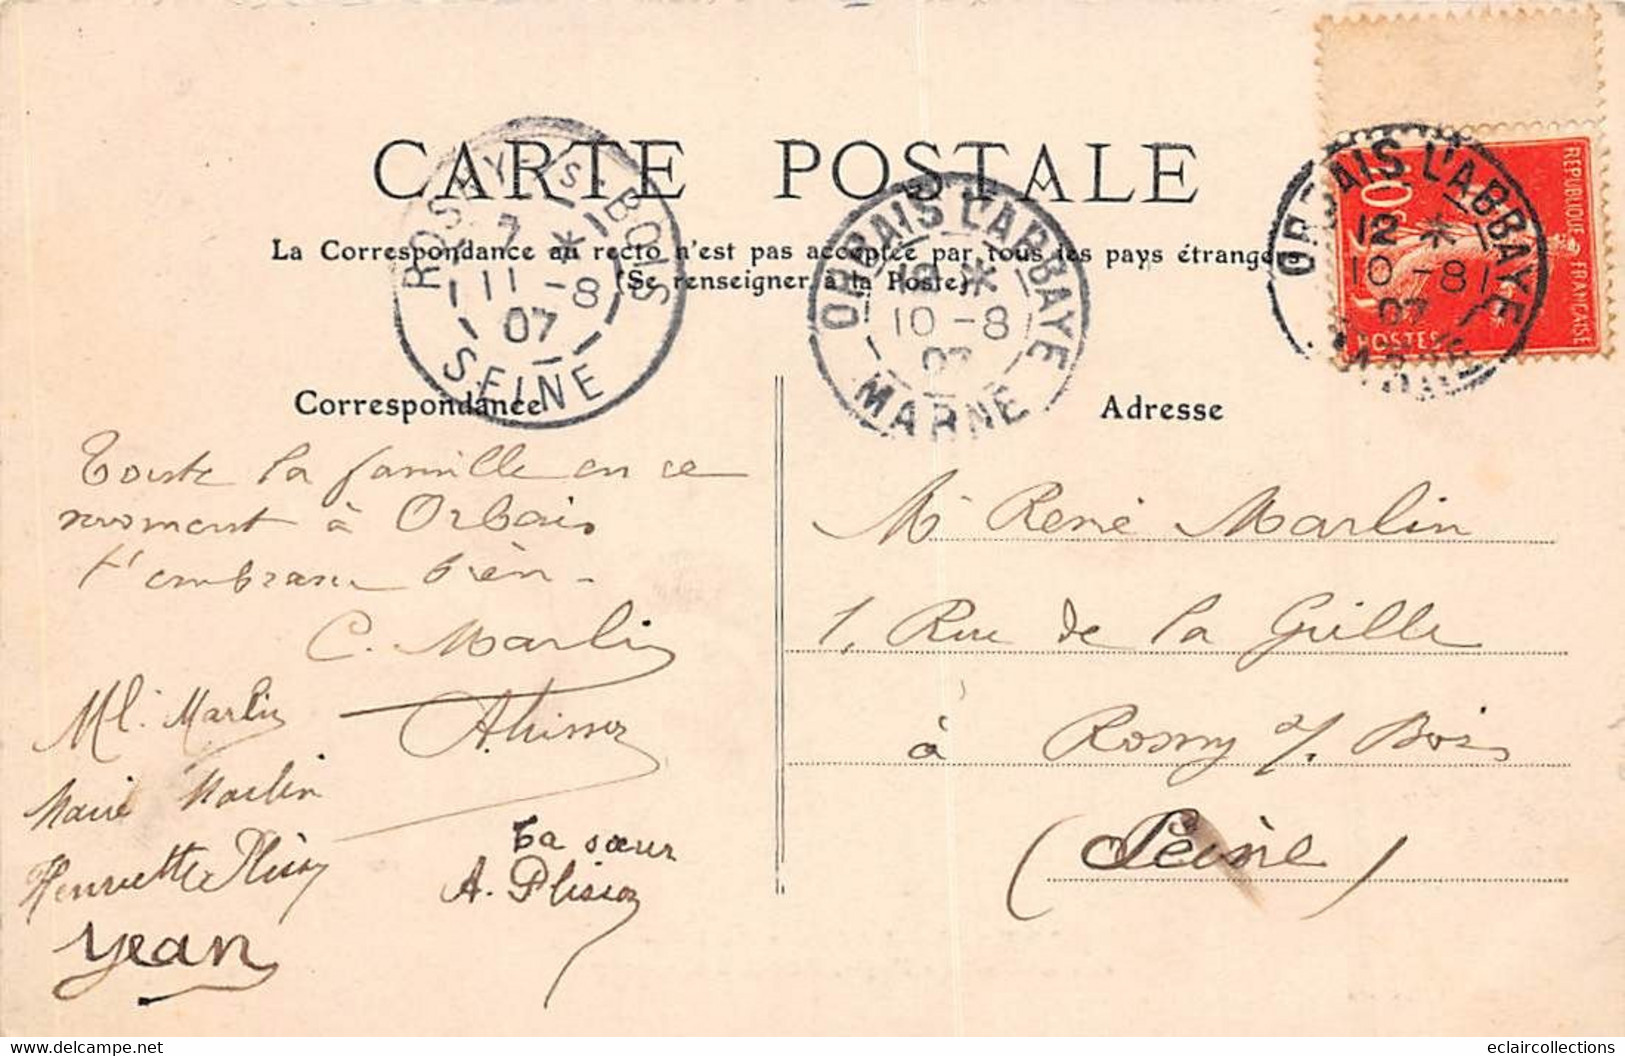 CARTE POSTALE
La Correspondance au recto n'est pas acceptée par tous les pays étrange
(Se renseigner à la Poste)
ROSNY-S-BOIS
7 *
11 -8
07
SEINE
ORBAIS L'ABBAYE
12 *
10 -8
07
MARNE
ORBAIS L'ABBAYE
12 *
10 -8
07
MARNE
10c
REPUBLIQUE FRANÇAISE
POSTES
Correspondance
Toute la famille en ce
moment à Orbais
t'embrasse bien -
C. Marlin
Ml. Marlin
Marie Marlin
Henriette
Jean
Ta sœur
A. Plisson
Adresse
Mr René Marlin
1, Rue de la Grille
à Rosny s/. Bois
(Seine)
www.delcampe.net
eclaircollections